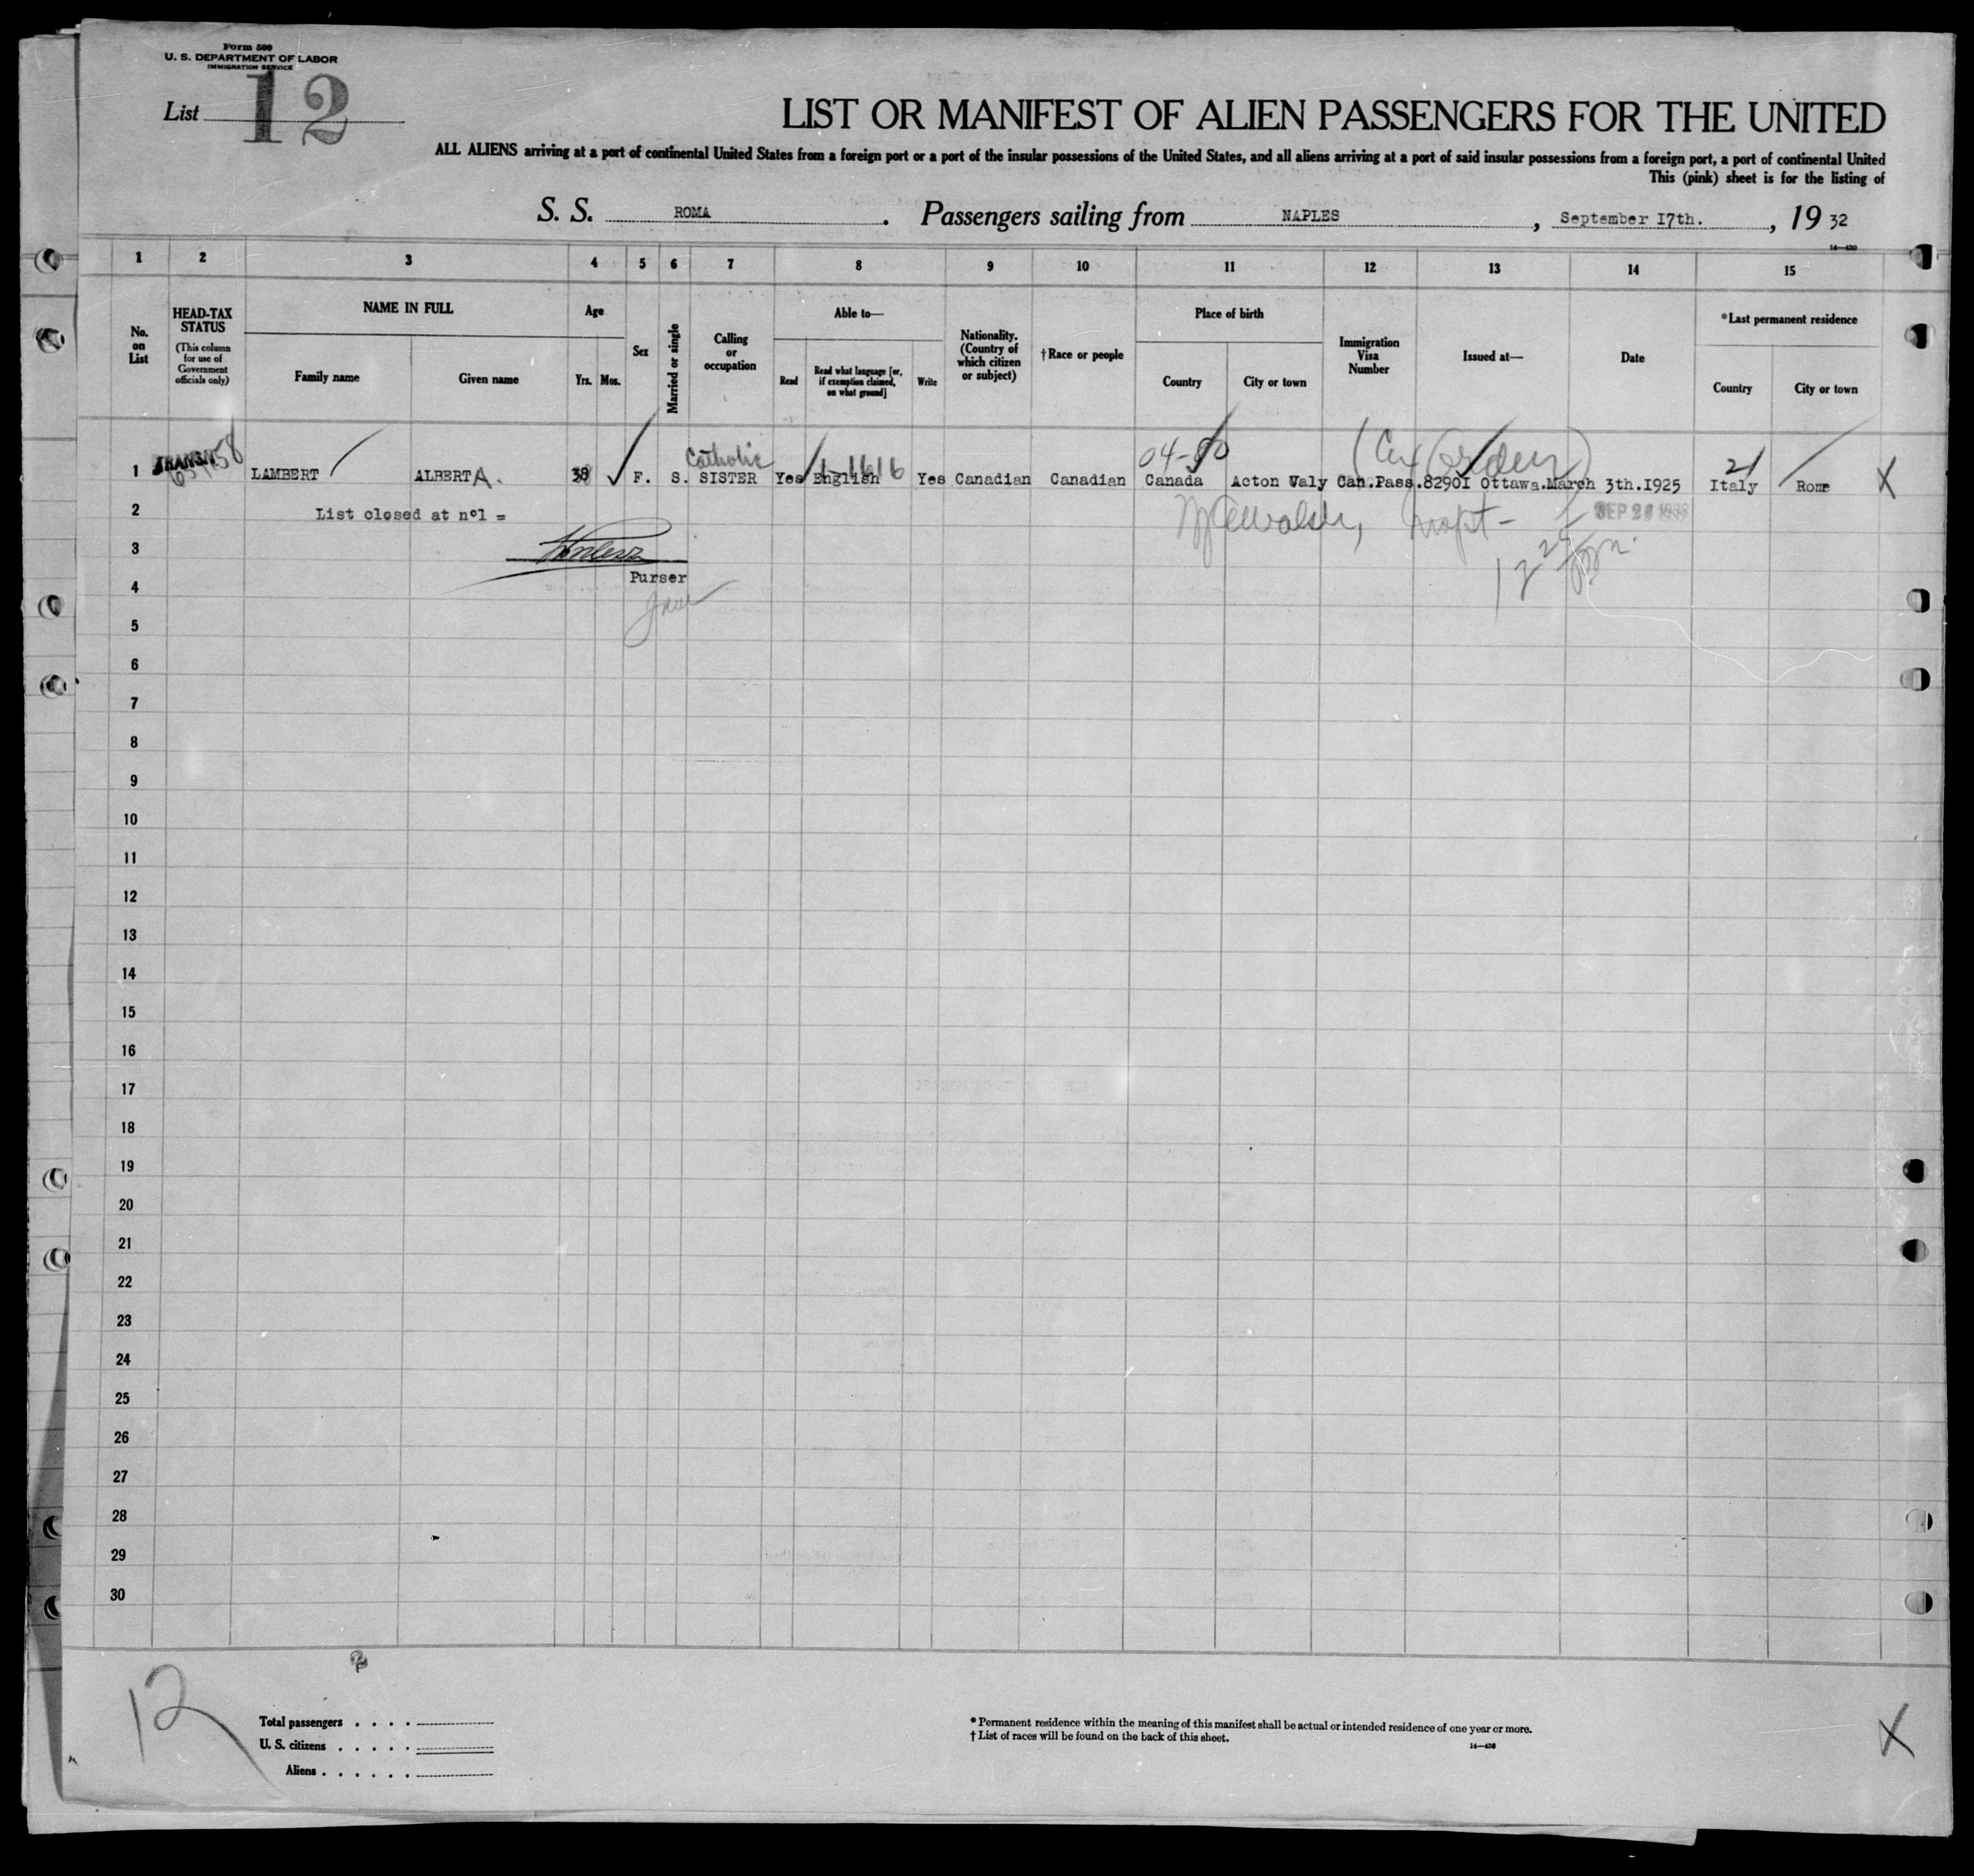 Form 500
U. S. DEPARTMENT OF LABOR
IMMIGRATION SERVICE
List 12
LIST OR MANIFEST OF ALIEN PASSENGERS FOR THE UNITED
ALL ALIENS arriving at a port of continental United States from a foreign port or a port of the insular possessions of the United States, and all aliens arriving at a port of said insular possessions from a foreign port, a port of continental United
This (pink) sheet is for the listing of
S. S. ROMA . Passengers sailing from NAPLES , September 17th. , 19 32
14—430
1 2 3 4 5 6 7 8 9 10 11 12 13 14 15
No. on List
HEAD-TAX STATUS
(This column for use of Government officials only)
NAME IN FULL
Family name
Given name
Age
Yrs. Mos.
Sex
Married or single
Calling or occupation
Able to—
Read
Read what language [or, if exemption claimed, on what ground]
Write
Nationality. (Country of which citizen or subject)
†Race or people
Place of birth
Country
City or town
Immigration Visa Number
Issued at—
Date
*Last permanent residence
Country
City or town
Catholic 1-1616 04-50 21
1 TRANSIT LAMBERT ALBERTA. 38 F. S. SISTER Yes English Yes Canadian Canadian Canada Acton Valy Can.Pass.82901 Ottawa.March 3th.1925 Italy Rome X
2 List closed at n°1 =
SEP 26 1932
3
Purser
4
5
6
7
8
9
10
11
12
13
14
15
16
17
18
19
20
21
22
23
24
25
26
27
28
29
30
12
Total passengers . . . .
U. S. citizens . . . . .
Aliens . . . . . .
* Permanent residence within the meaning of this manifest shall be actual or intended residence of one year or more.
† List of races will be found on the back of this sheet.
14—430
X